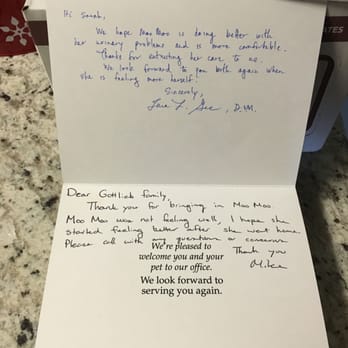 Hi Sarah,
We hope Moo Moo is doing better with
her urinary problems and is more comfortable.
Thanks for entrusting her care to us.
We look forward to you both again when
she is feeling more herself!
Sincerely,
D.V.M.
Dear Gottlieb family,
Thank you for bringing in Moo Moo.
Moo Moo was not feeling well, I hope she
started feeling better after she went home.
Please call with any questions or concerns.
We're pleased to
Thank you
welcome you and your
Mike
pet to our office.
We look forward to
serving you again.